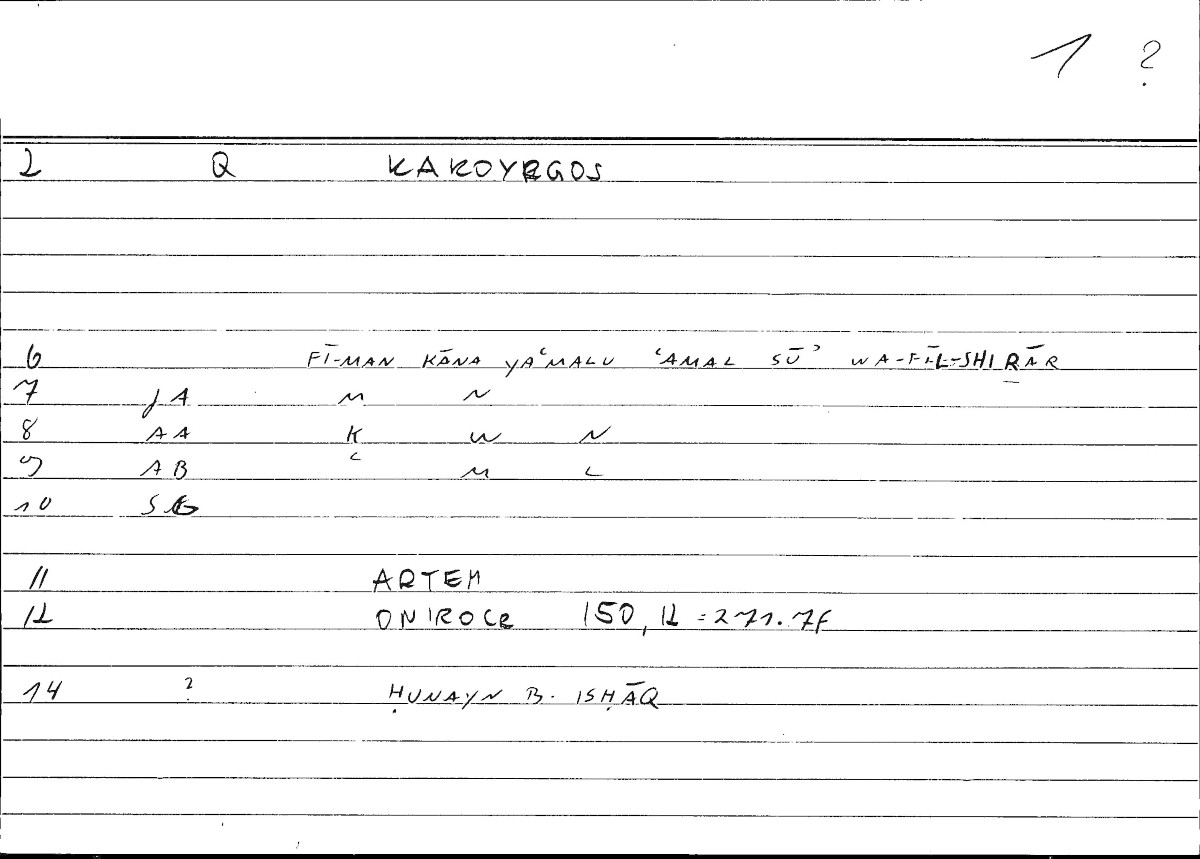 1 ?
2 Q KAKOYRGOS
6 FĪ-MAN KĀNA YAʿMALU ʿAMAL SŪʾ WA-FĪ-L-SHIRĀR
7 JA M N
8 AA K W N
9 AB ʿ M L
10 SG
11 ARTEM
12 ONIROCR 150, 12 = 271.7F
14 ? ḤUNAYN B. ISḤĀQ